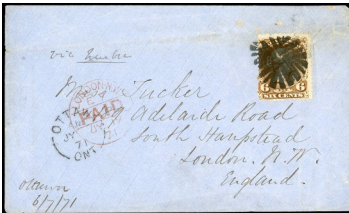 via Quebec
6 SIX CENTS 6
LONDON
PAID
Mr Tucker
29 Adelaide Road
South Hampstead
London. N.W.
England.
OTTAWA
JY
71
ONT
Ottawa
6/7/71